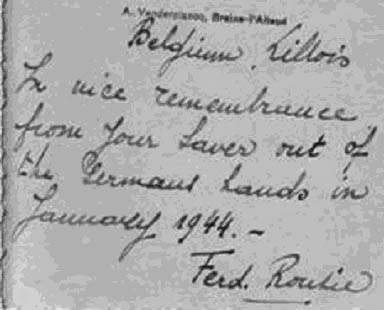 A. Vanderplancq, Braine-l'Alleud
Belgium, Lillois
In nice remembrance
from Your Saver out of
the Germans hands in
Jannuary 1944. -
Ferd. Routie